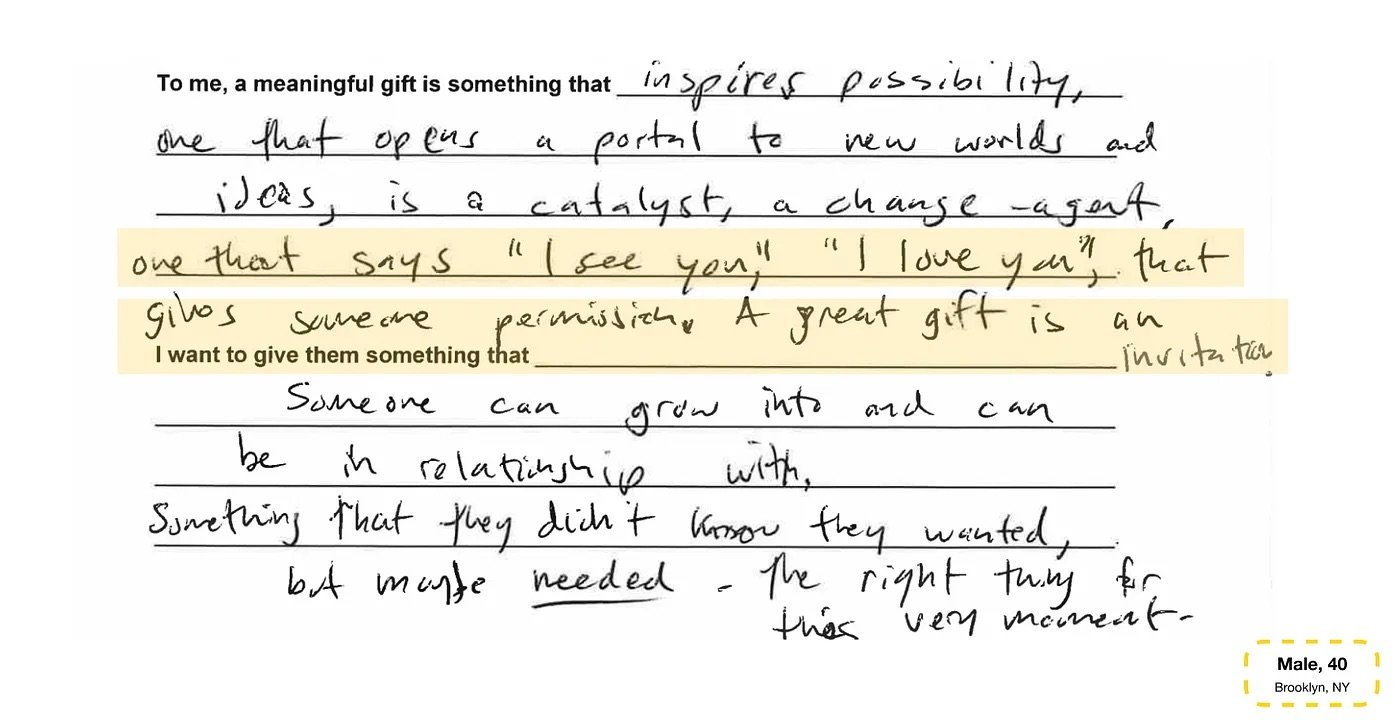 To me, a meaningful gift is something that inspires possibility,
one that opens a portal to new worlds and
ideas, is a catalyst, a change-agent,
one that says "I see you," "I love you", that
gives someone permission. A great gift is an
I want to give them something that invitation.
Someone can grow into and can
be in relationship with.
Something that they didn't know they wanted,
but maybe needed - The right thing for
this very moment-
Male, 40
Brooklyn, NY